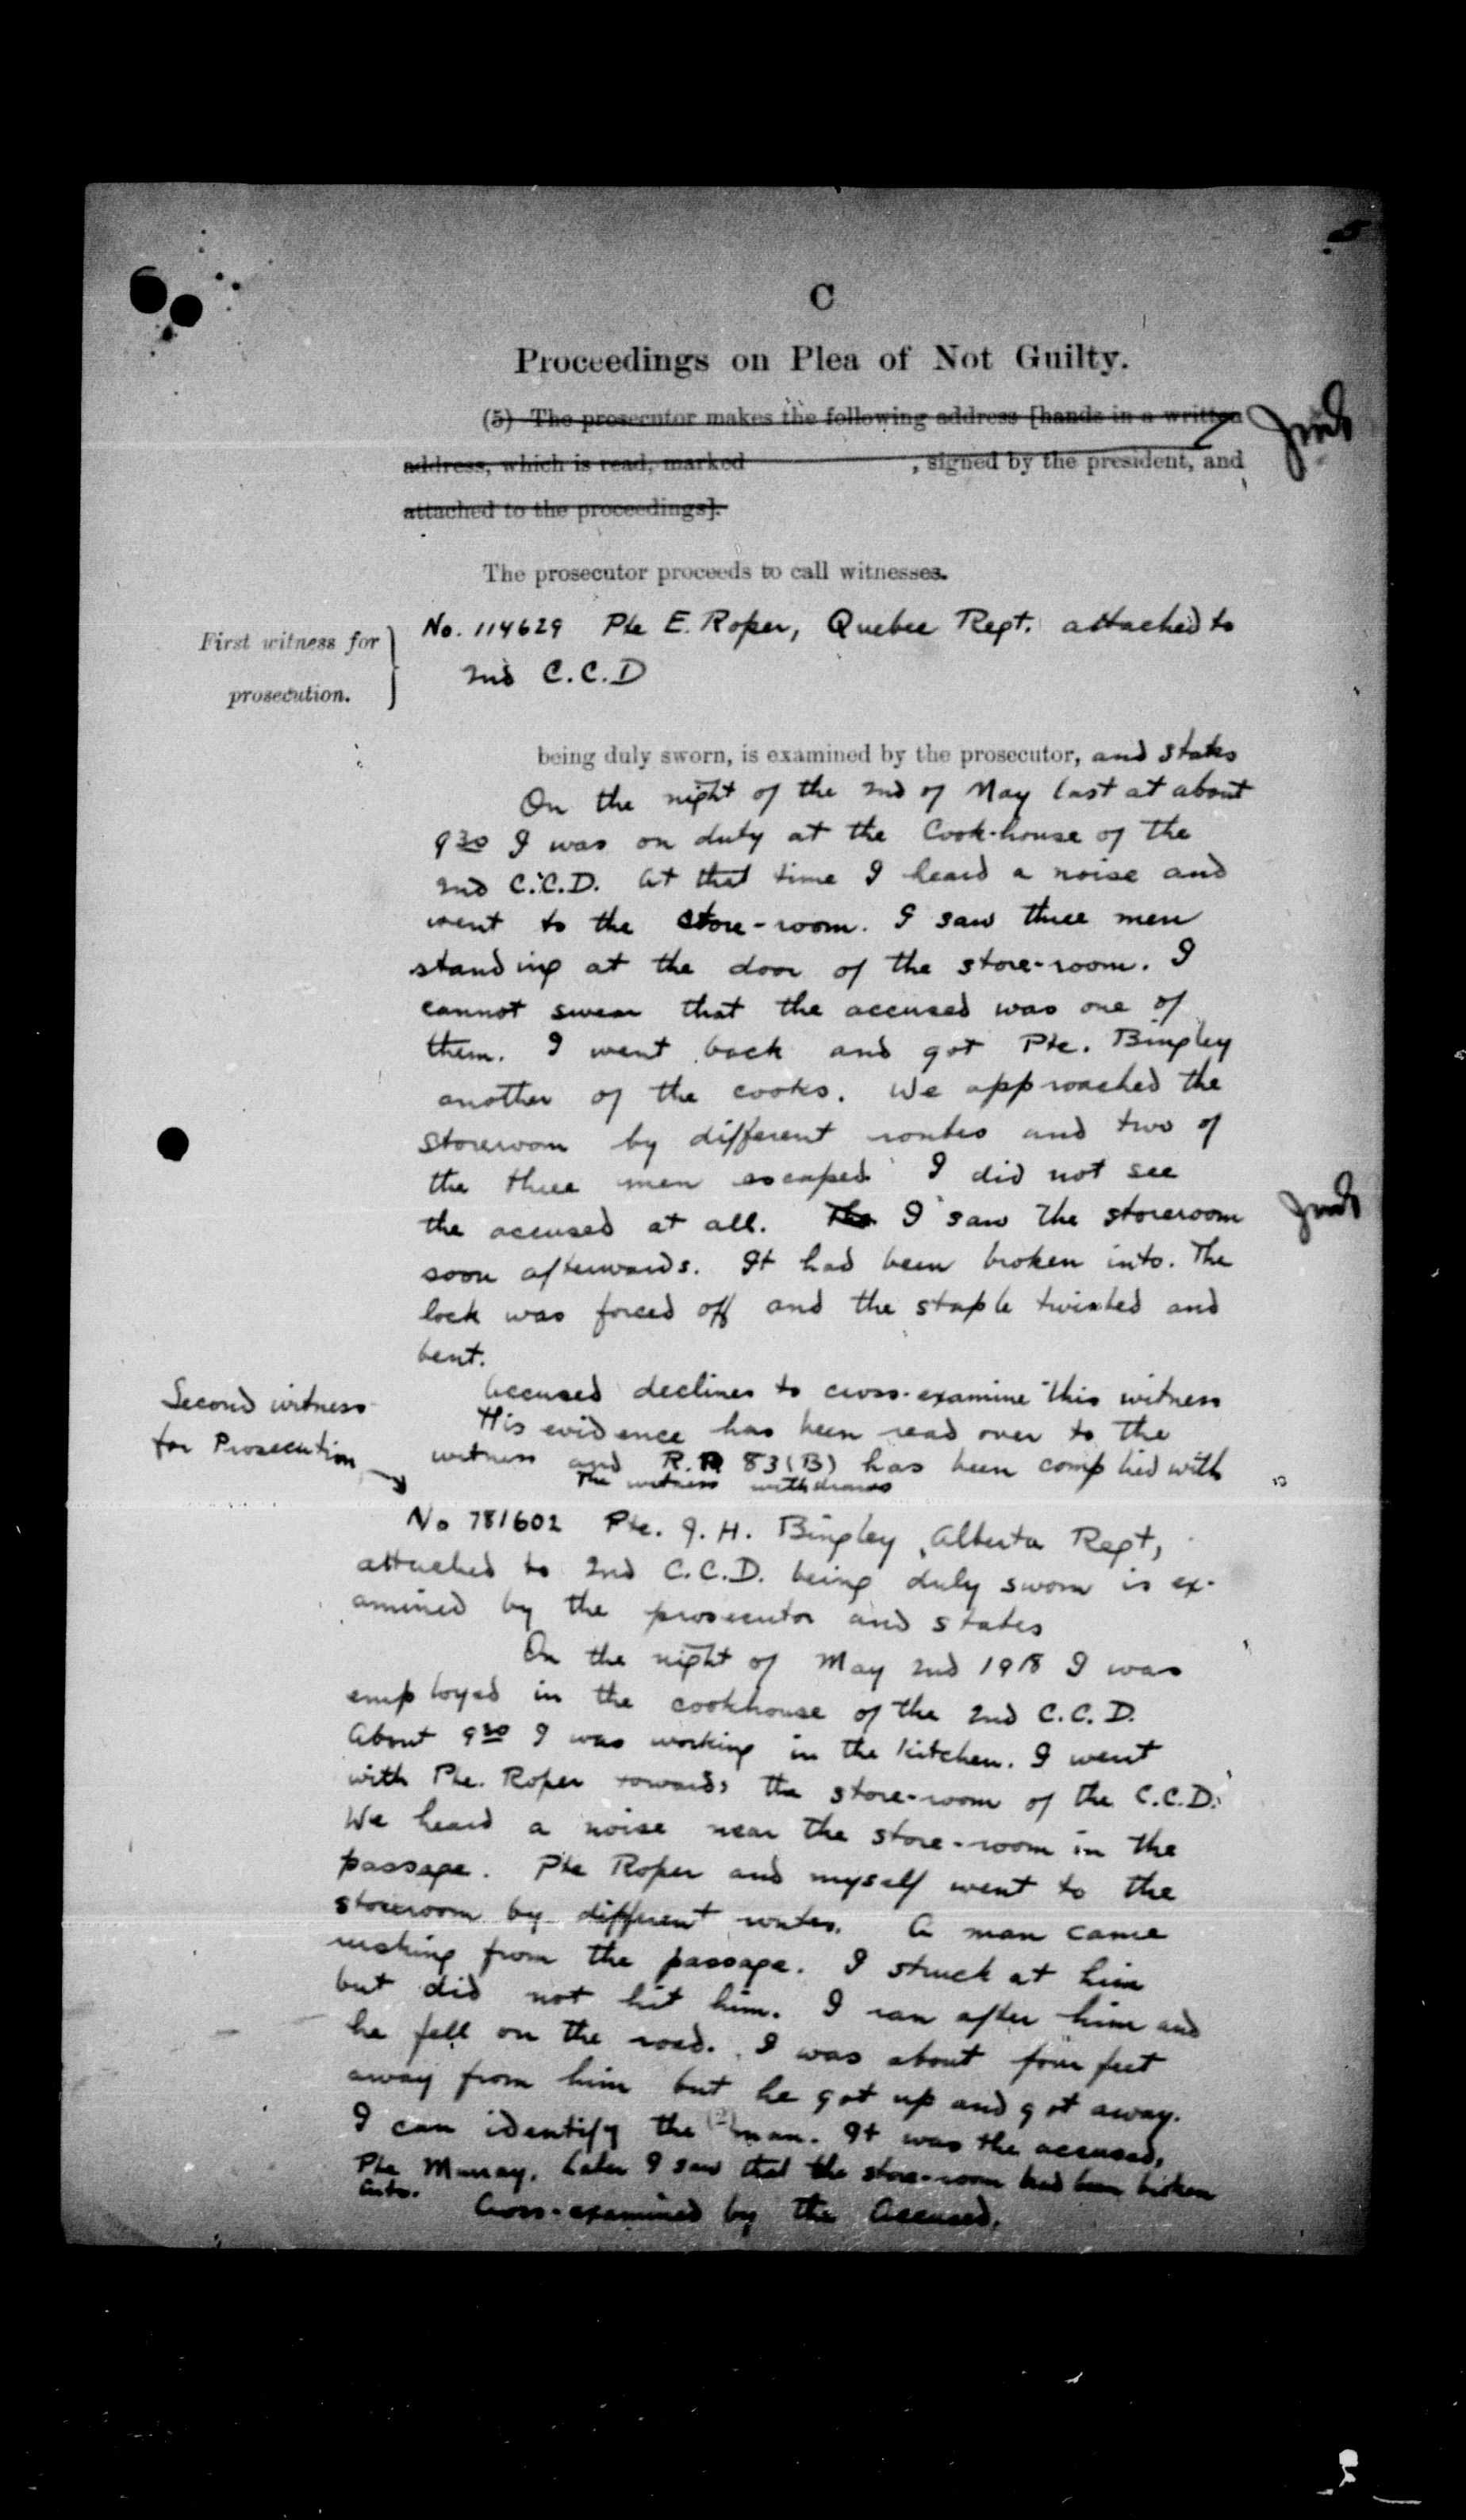 C
Proceedings on Plea of Not Guilty.
(5) The prosecutor makes the following address [hands in a written
address, which is read, marked , signed by the president, and
attached to the proceedings].
The prosecutor proceeds to call witnesses.
First witness for
prosecution.
No. 114629 Pte E. Roper, Quebec Regt. attached to
2nd C.C.D
being duly sworn, is examined by the prosecutor, and states
On the night of the 2nd of May last at about
9 30 I was on duty at the Cook-house of the
2nd C.C.D. At that time I heard a noise and
went to the store-room. I saw three men
standing at the door of the store-room. I
cannot swear that the accused was one of
them. I went back and got Pte. Bingley
another of the cooks. We approached the
storeroom by different routes and two of
the three men escaped. I did not see
the accused at all. The I saw the storeroom
soon afterwards. It had been broken into. The
lock was forced off and the staple twisted and
bent.
Accused declines to cross-examine this witness
His evidence has been read over to the
witness and R.P. 83(B) has been complied with
The witness withdraws
Second witness
for Prosecution
No 781602 Pte. J. H. Bingley, Alberta Regt,
attached to 2nd C.C.D. being duly sworn is ex-
amined by the prosecutor and states
On the night of May 2nd 1918 I was
employed in the cookhouse of the 2nd C.C.D.
About 9 30 I was working in the kitchen. I went
with Pte. Roper towards the store-room of the C.C.D.
We heard a noise near the store-room in the
passage. Pte Roper and myself went to the
storeroom by different routes. A man came
rushing from the passage. I struck at him
but did not hit him. I ran after him and
he fell on the road. I was about four feet
away from him but he got up and got away.
I can identify the man. It was the accused,
Pte Murray. Later I saw that the store-room had been broken
into.
Cross-examined by the Accused.